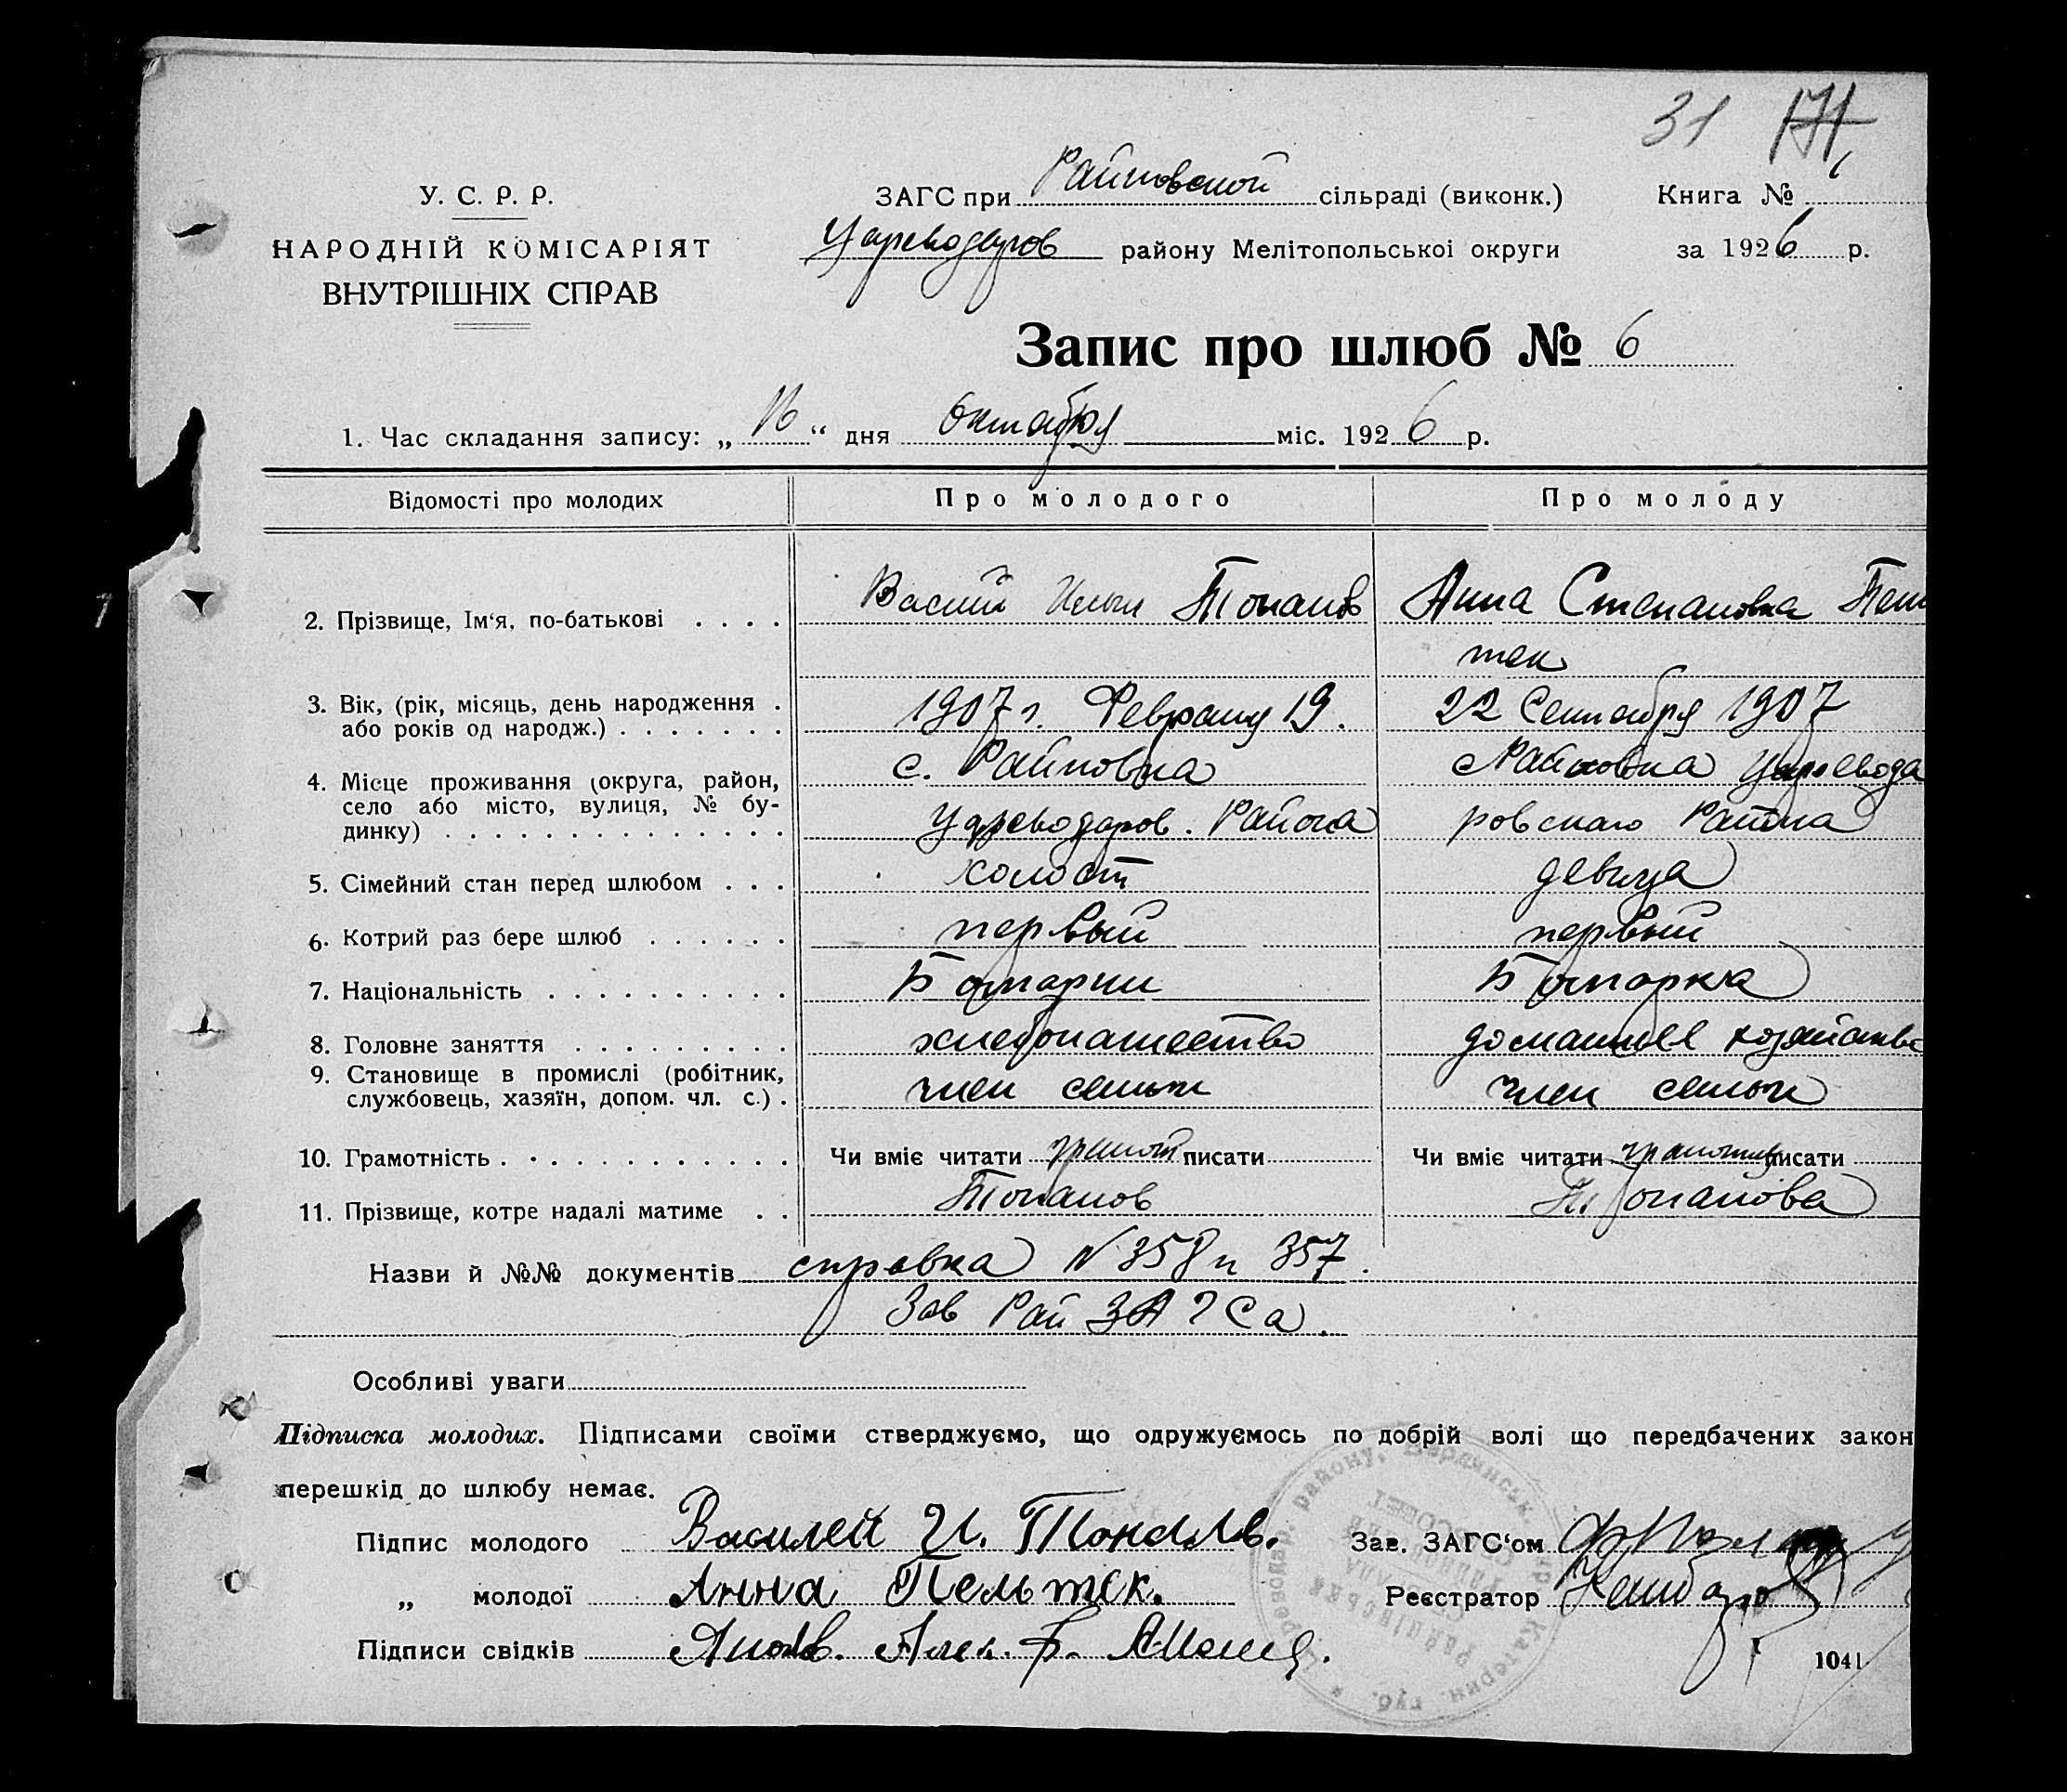 31 171
У. С. Р. Р.
НАРОДНІЙ КОМІСАРІЯТ
ВНУТРІШНІХ СПРАВ
ЗАГС при Райновской сільраді (виконк.)
Цареводаров району Мелітопольськоі округи
Книга №
за 1926 р.
Запис про шлюб № 6
1. Час складання запису: „16“ дня Октября міс. 1926 р.
Відомості про молодих Про молодого Про молоду
2. Прізвище, Ім‘я, по-батькові . . . . Васил Ильи Топалов Анна Степановна Пель
тек
3. Вік, (рік, місяць, день народження . 1907 г. Февраля 19. 22 Сентября 1907
або років од народж.) . . . . . . .
4. Місце проживання (округа, район, с. Райновка с Райновка Царевода
село або місто, вулиця, № бу- Цареводаров. Района ровскаго Района
динку) . . . . . . . . . . . . . .
5. Сімейний стан перед шлюбом . . . холост девица
6. Котрий раз бере шлюб . . . . . . первый первый
7. Національність . . . . . . . . . . Болгарин Болгарка
8. Головне заняття . . . . . . . . . хлебопашество домашнее хозяйство
9. Становище в промислі (робітник,
службовець, хазяїн, допом. чл. с.) . член семьи член семьи
10. Грамотність . . . . . . . . . . . . Чи вміє читати грамот писати Чи вміє читати грамотна писати
11. Прізвище, котре надалі матиме . . Топалов Топалова
Назви й №№ документів справка N 358 и 357.
Зав Рай ЗАГСа.
Особливі уваги
Підписка молодих. Підписами своїми стверджуємо, що одружуємось по добрій волі що передбачених закон
перешкід до шлюбу немає.
Підпис молодого Василей И. Топалов.
Зав. ЗАГС‘ом
„ молодої Анна Пельтек.
Реєстратор
Підписи свідків
1041